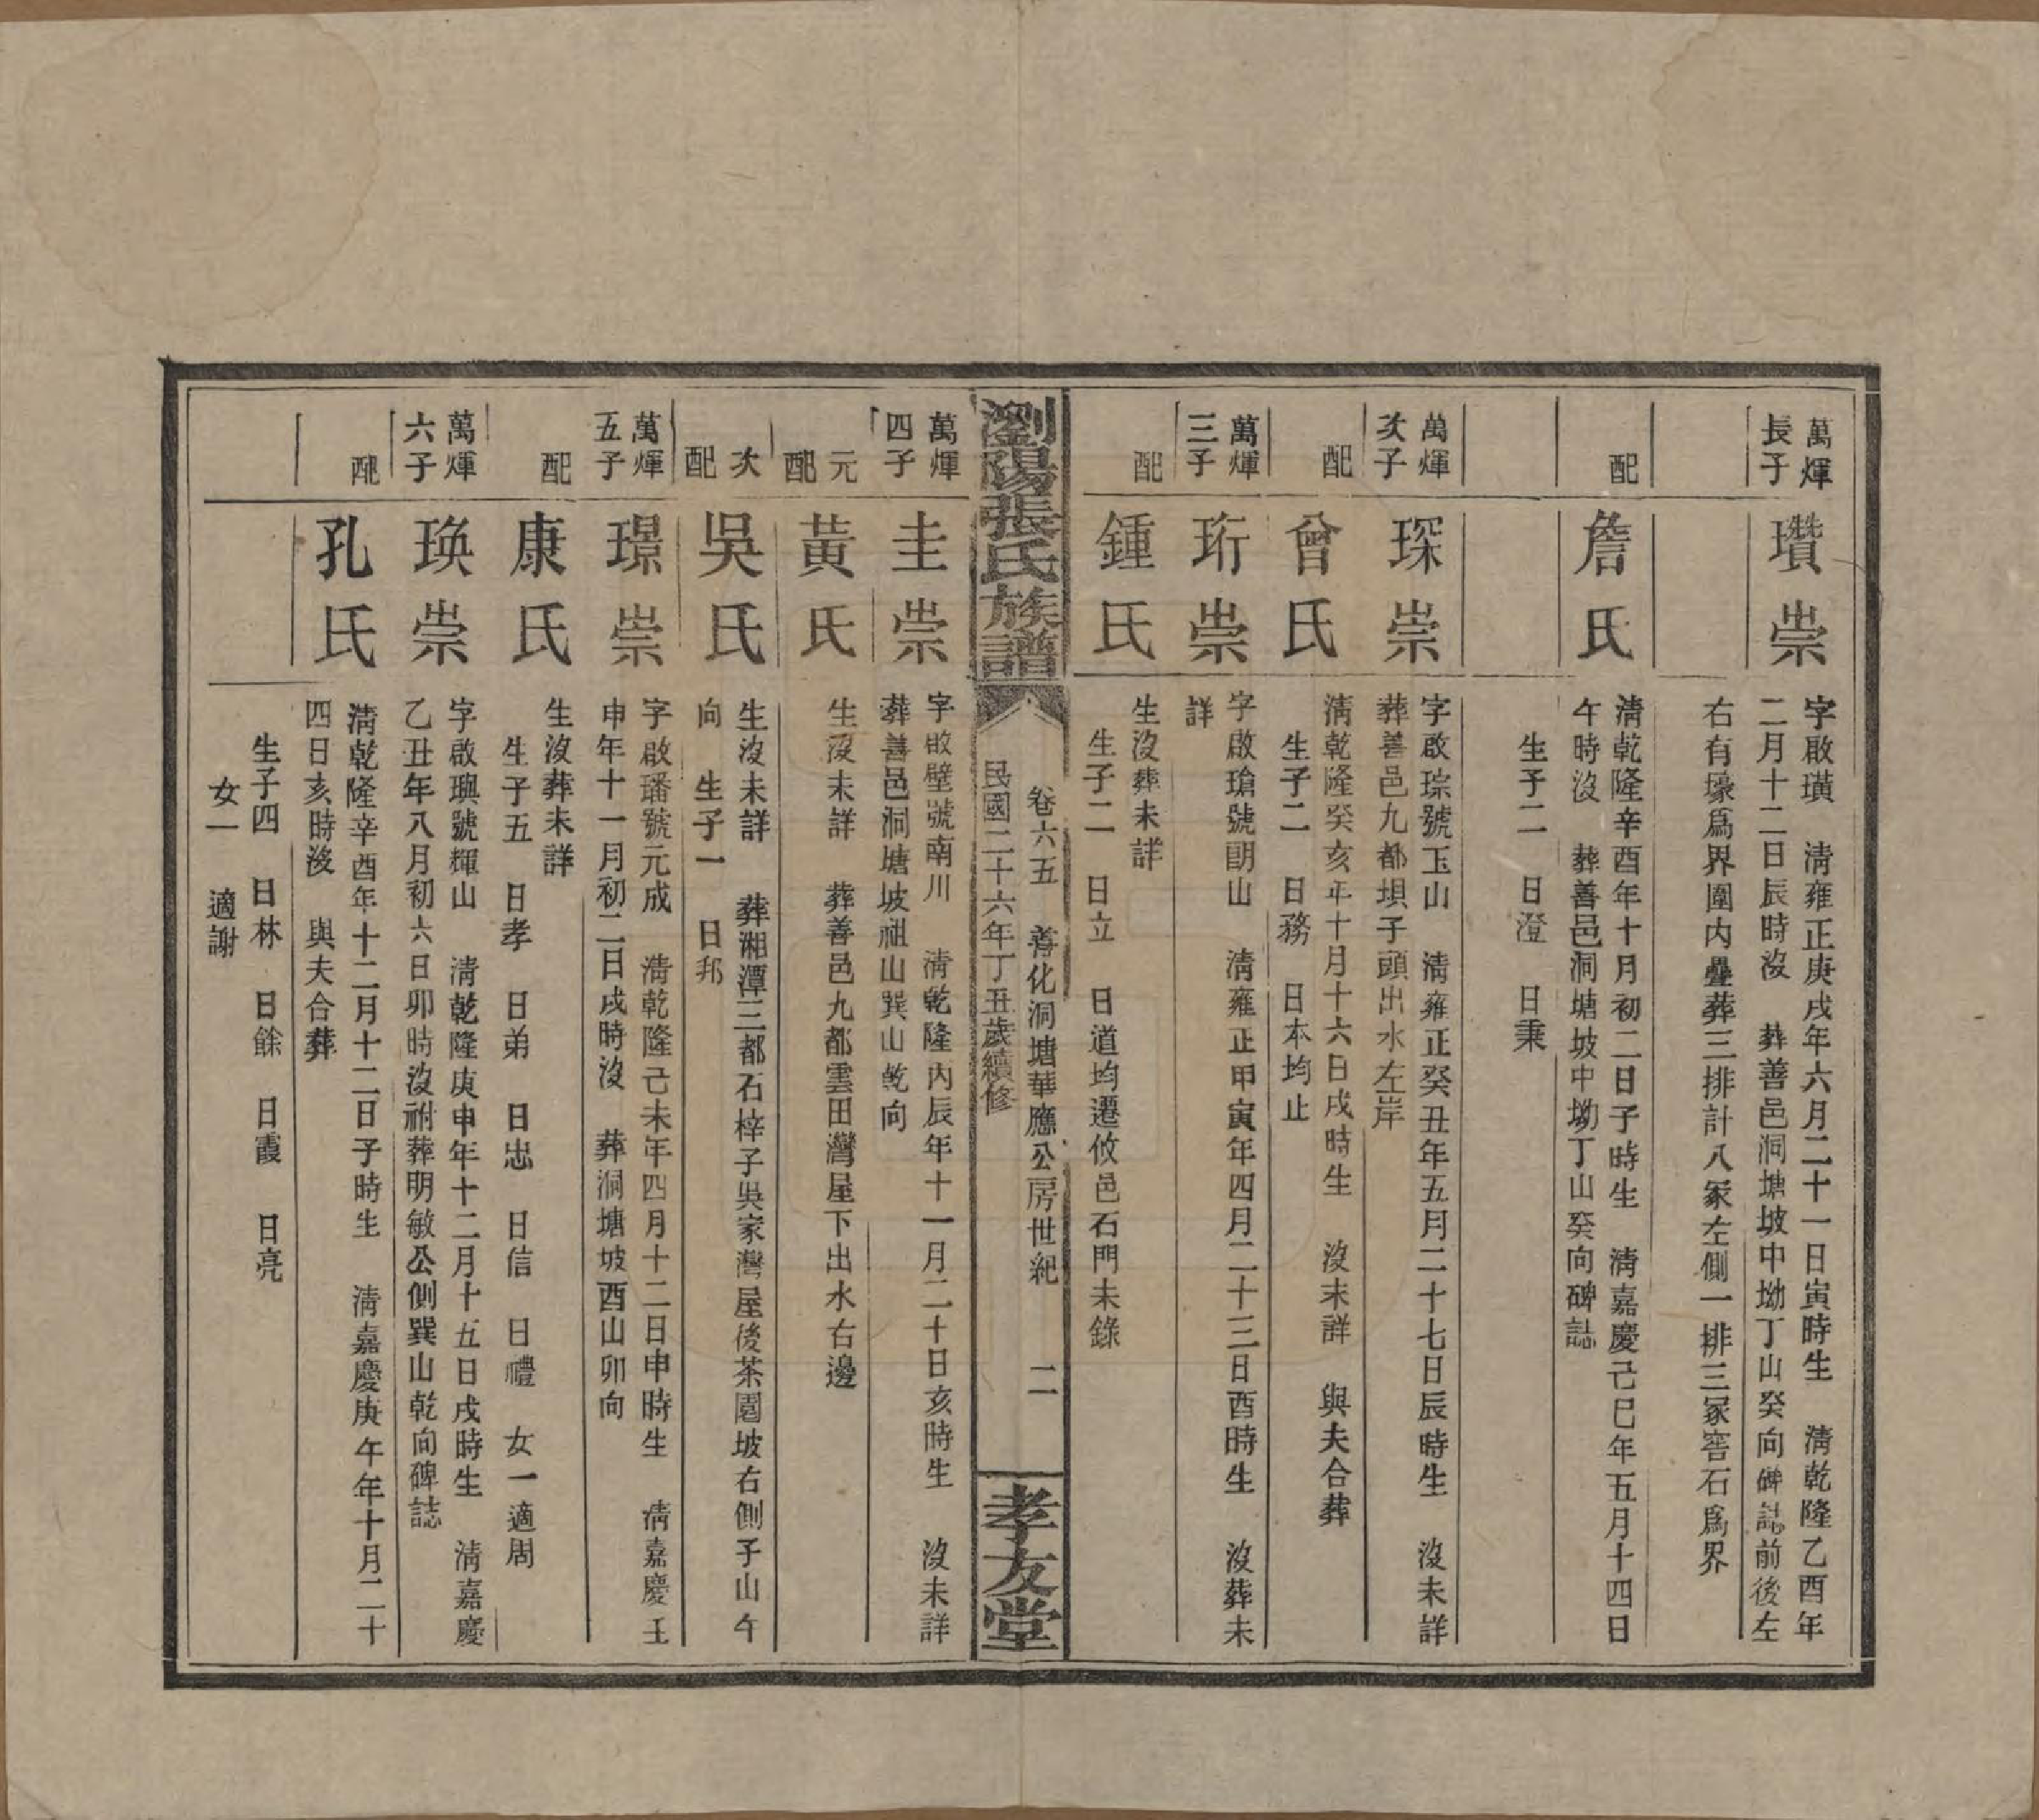 萬煇
長子
瓚崇
字啟璜　淸雍正庚戌年六月二十一日寅時生　淸乾隆乙酉年
二月十二日辰時沒　葬善邑洞塘坡中坳丁山癸向碑誌前後左
右有壕爲界圍內疊葬三排計八冢左側一排三冢窖石爲界
配
詹氏
淸乾隆辛酉年十月初二日子時生　淸嘉慶己巳年五月十四日
午時沒　葬善邑洞塘坡中坳丁山癸向碑誌
生子二　日澄　日秉
萬煇
次子
琛崇
字啟琮號玉山　淸雍正癸丑年五月二十七日辰時生　沒未詳
葬善邑九都垻子頭出水左岸
配
曾氏
淸乾隆癸亥年十月十六日戌時生　沒未詳　與夫合葬
生子二　日務　日本均止
萬煇
三子
珩崇
字啟瑲號朗山　淸雍正甲寅年四月二十三日酉時生　沒葬未
詳
配
鍾氏
生沒葬未詳
生子二　日立　日道均遷攸邑石門未錄
瀏陽張氏族譜
卷六五　善化洞塘華應公房世紀　二
民國二十六年丁丑歲續修
孝友堂
萬煇
四子
圭崇
字啟壁號南川　淸乾隆丙辰年十一月二十日亥時生　沒未詳
葬善邑洞塘坡祖山巽山乾向
元
配
黃氏
生沒未詳　葬善邑九都雲田灣屋下出水右邊
次
配
吳氏
生沒未詳　葬湘潭三都石梓子吳家灣屋後茶園坡右側子山午
向　生子一　日邦
萬煇
五子
璟崇
字啟璠號元成　淸乾隆己未年四月十二日申時生　淸嘉慶壬
申年十一月初二日戌時沒　葬洞塘坡酉山卯向
配
康氏
生沒葬未詳
生子五　日孝　日弟　日忠　日信　日禮　女一適周
萬煇
六子
瑛崇
字啟璵號輝山　淸乾隆庚申年十二月十五日戌時生　淸嘉慶
乙丑年八月初六日卯時沒祔葬明敏公側巽山乾向碑誌
配
孔氏
淸乾隆辛酉年十二月十二日子時生　淸嘉慶庚午年十月二十
四日亥時沒　與夫合葬
生子四　日林　日餘　日霞　日亮
女一　適謝